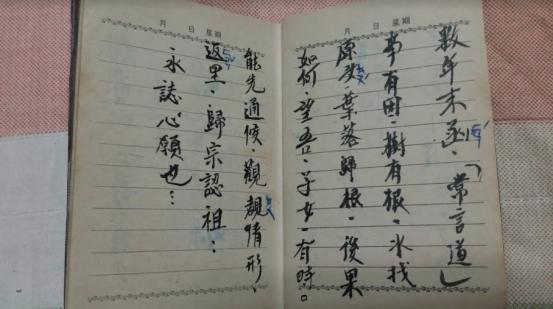 月 日 星期
數年未函、「常言道」
事有因、樹有根、水找
源头、葉落歸根、後果
如何、望吾、子女、有時。
月 日 星期
能先通候、觀覩情形、
返里、歸宗認祖：
永誌心願也…